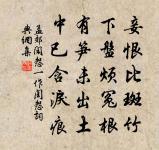 妾恨比斑竹
下盤煩冤根
有笋未出土
中已含淚痕
孟郊閑怨一作閨怨詞
典網集